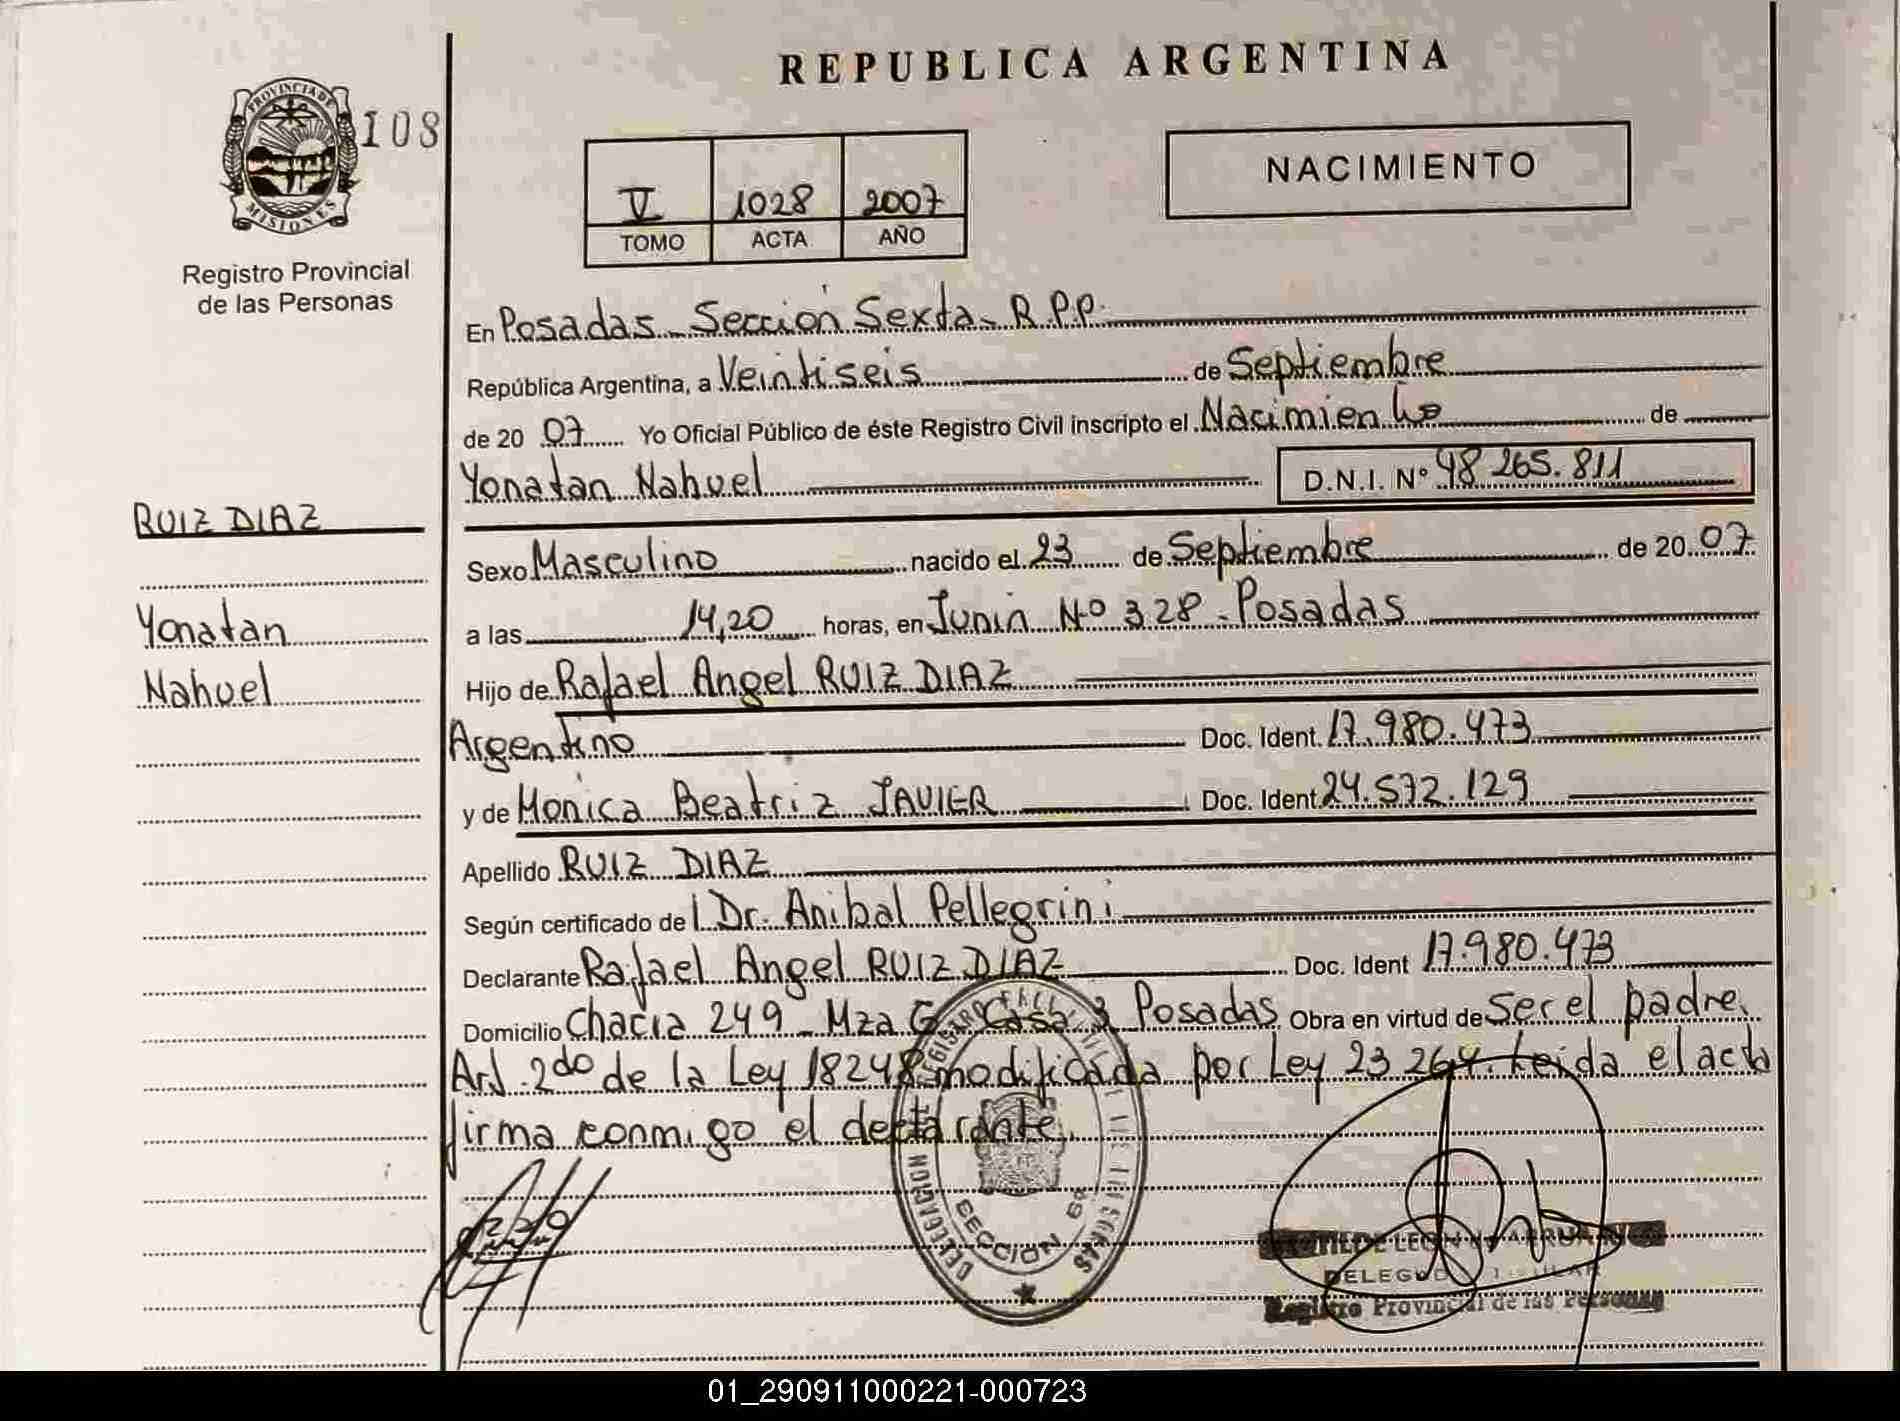 REPUBLICA ARGENTINA
PROVINCIA DE
MISIONES
108
Registro Provincial
de las Personas
V 1028 2007
TOMO ACTA AÑO
NACIMIENTO
En Posadas - Sección Sexta - R.P.P.
República Argentina, a Veintiseis de Septiembre
de 20 07 Yo Oficial Público de éste Registro Civil inscripto el Nacimiento de
Yonatan Nahuel D.N.I. Nº 48 265.811
RUIZ DIAZ
Yonatan
Nahuel
Sexo Masculino nacido el 23 de Septiembre de 20 07
a las 14,20 horas, en Junin Nº 328 - Posadas
Hijo de Rafael Angel RUIZ DIAZ
Argentino Doc. Ident. 17.980.473
y de Monica Beatriz JAVIER Doc. Ident. 24.572.129
Apellido RUIZ DIAZ
Según certificado de l Dr. Anibal Pellegrini
Declarante Rafael Angel RUIZ DIAZ Doc. Ident 17.980.473
Domicilio Chacra 249 - Mza G Casa 3 Posadas Obra en virtud de Ser el padre.
Art. 2do de la Ley 18248 modificada por Ley 23 264. Leida el acta
firma conmigo el declarante.
DELEGACION
SECCION 6a
Registro Provincial de las Personas
01_290911000221-000723